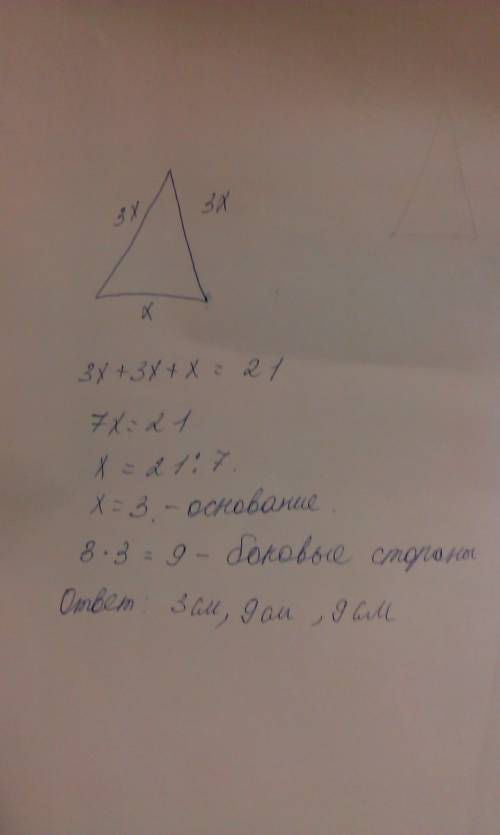 3x 3x
x
3x+3x+x = 21
7x=21
x = 21:7.
x=3. - основание.
3·3=9 - боковые стороны
Ответ: 3см, 9см, 9см